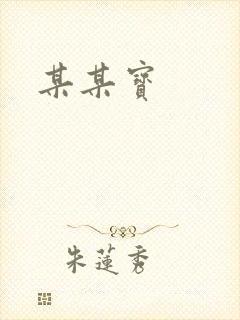 某某寶
朱蓮秀